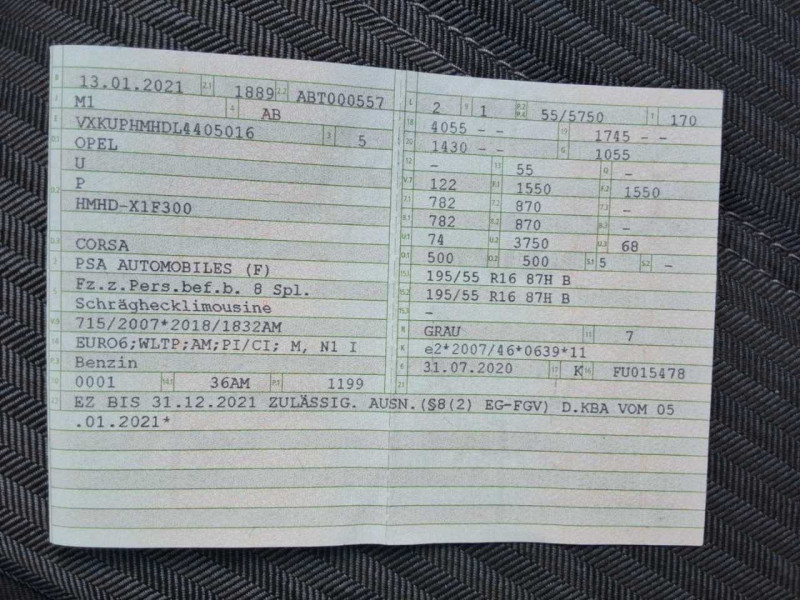 13.01.2021 2.1 1889 2.2 ABT000557
M1 4 AB
VXKUPHMHDL4405016 3 5
OPEL
U
P
HMHD-X1F300
CORSA
PSA AUTOMOBILES (F)
Fz.z.Pers.bef.b. 8 Spl.
Schräghecklimousine
715/2007*2018/1832AM
EURO6;WLTP;AM;PI/CI; M, N1 I
Benzin
0001 36AM 1199
L 2 9 1 55/5750 T 170
4055 - - 1745 - -
1430 - - G 1055
- 55 Q -
122 1550 1550
782 870 -
782 870 -
74 3750 68
500 500 5 -
195/55 R16 87H B
195/55 R16 87H B
-
R GRAU 11 7
K e2*2007/46*0639*11
6 31.07.2020 17 K 16 FU015478
21
EZ BIS 31.12.2021 ZULÄSSIG. AUSN.(§8(2) EG-FGV) D.KBA VOM 05
.01.2021*